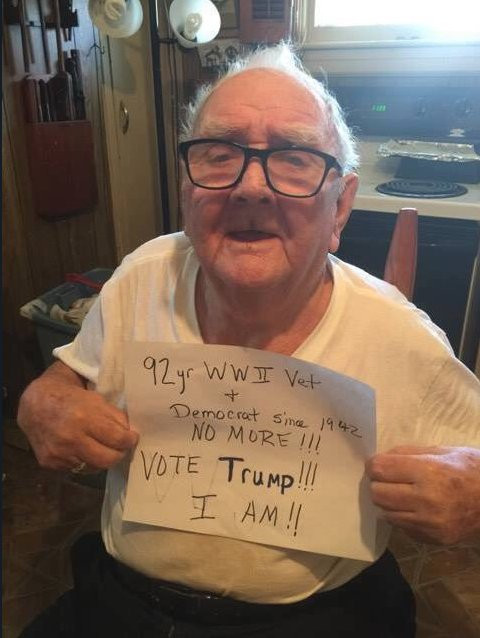 92yr WW II Vet
+
Democrat since 1942
NO MORE!!!
VOTE Trump!!!
I AM!!